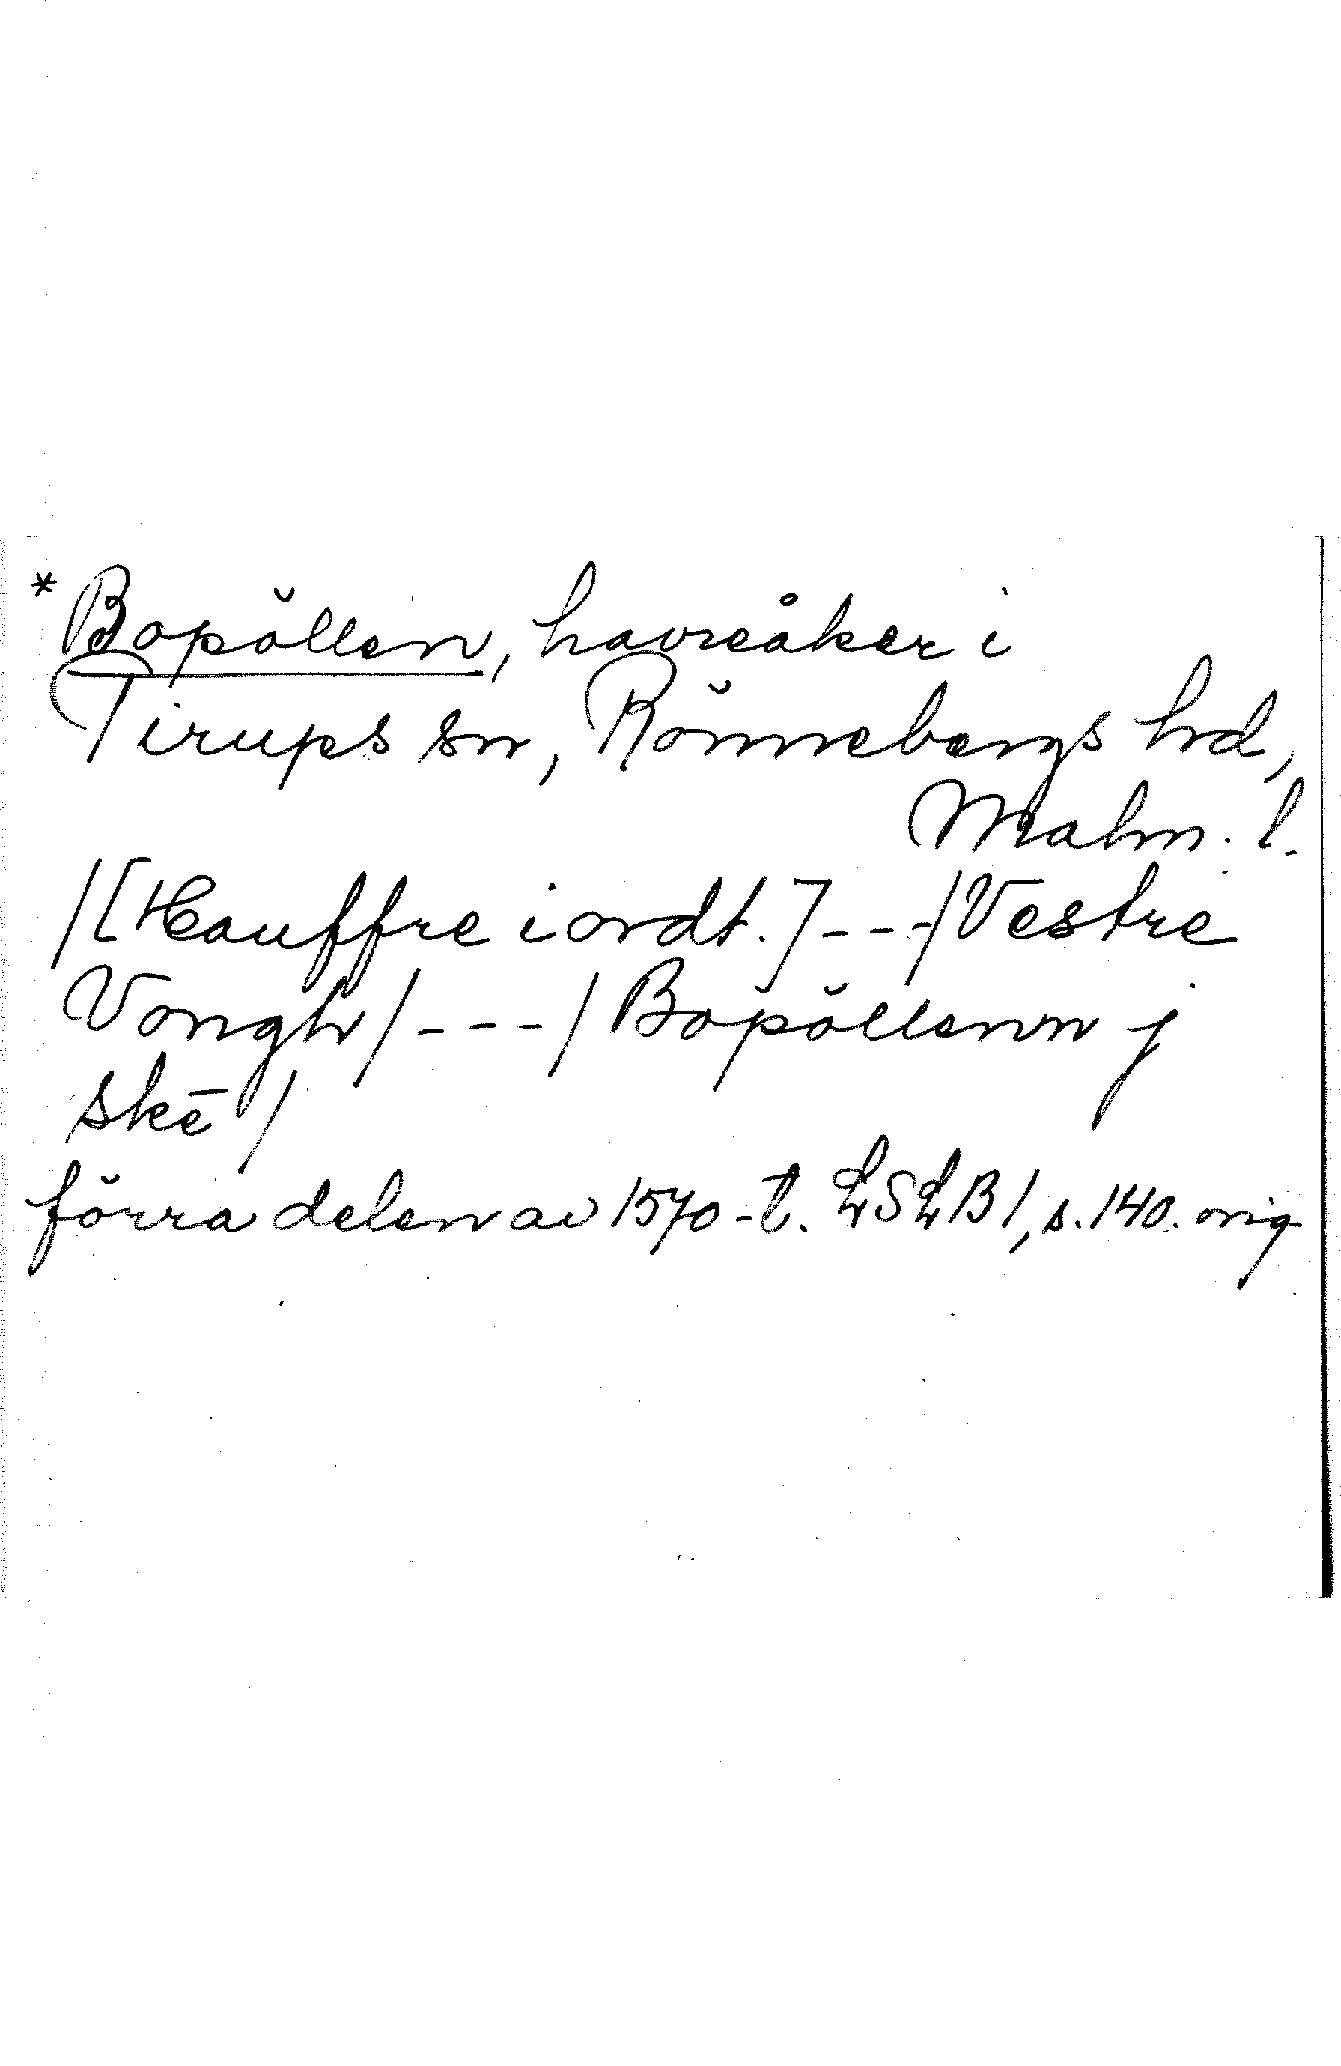 *Bopöllen, havreåker i
Tirups sn, Rönnebergs hd,
Malm. l.
/[Hauffre iordt.]---/Vestre
Vongh/---/Bopöllenn j
skē/
förra delen av 1570-t. LSLB1, s. 140. orig